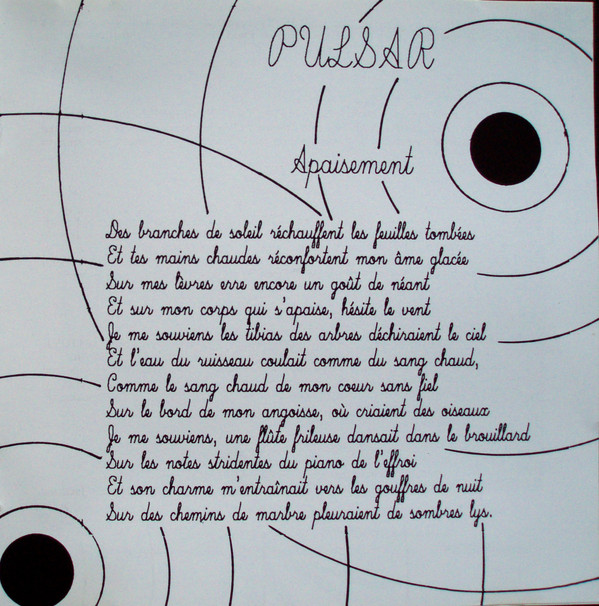 PULSAR
Apaisement
Des branches de soleil réchauffent les feuilles tombées
Et tes mains chaudes réconfortent mon âme glacée
Sur mes lèvres erre encore un goût de néant
Et sur mon corps qui s'apaise, hésite le vent
Je me souviens les tibias des arbres déchiraient le ciel
Et l'eau du ruisseau coulait comme du sang chaud,
Comme le sang chaud de mon coeur sans fiel
Sur le bord de mon angoisse, où criaient des oiseaux
Je me souviens, une flûte frileuse dansait dans le brouillard
Sur les notes stridentes du piano de l'effroi
Et son charme m'entraînait vers les gouffres de nuit
Sur des chemins de marbre pleuraient de sombres lys.